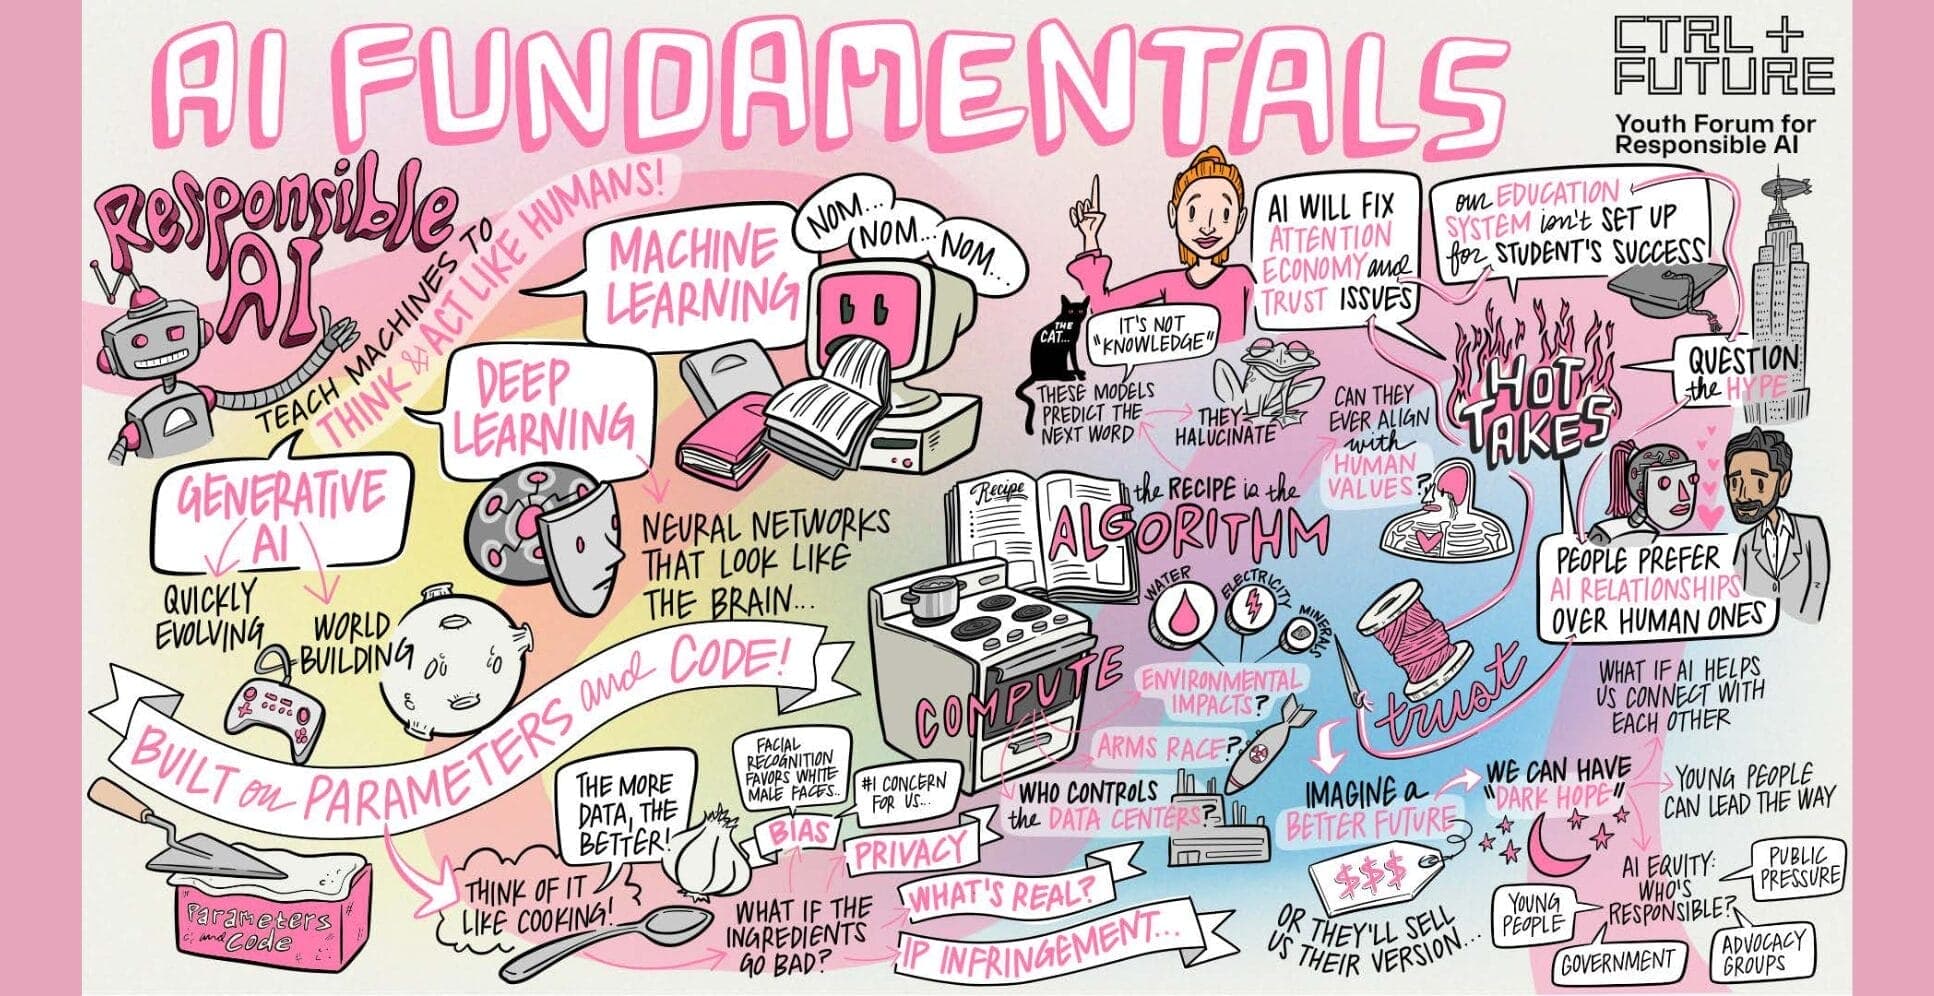 AI FUNDAMENTALS
CTRL +
FUTURE
Youth Forum for
Responsible AI
Responsible
AI
TEACH MACHINES TO
THINK & ACT LIKE HUMANS!
MACHINE
LEARNING
NOM...
NOM...
NOM...
DEEP
LEARNING
NEURAL NETWORKS
THAT LOOK LIKE
THE BRAIN...
GENERATIVE
AI
QUICKLY
EVOLVING
WORLD
BUILDING
BUILT on PARAMETERS and CODE!
Parameters
and Code
THINK OF IT
LIKE COOKING!
THE MORE
DATA, THE
BETTER!
WHAT IF THE
INGREDIENTS
GO BAD?
BIAS
FACIAL
RECOGNITION
FAVORS WHITE
MALE FACES..
PRIVACY
#1 CONCERN
FOR US...
WHAT'S REAL?
IP INFRINGEMENT...
THE
CAT...
IT'S NOT
"KNOWLEDGE"
THESE MODELS
PREDICT THE
NEXT WORD
THEY
HALUCINATE
CAN THEY
EVER ALIGN
with
HUMAN
VALUES?
Recipe
the RECIPE is the
ALGORITHM
COMPUTE
WATER
ELECTRICITY
MINERALS
ENVIRONMENTAL
IMPACTS?
ARMS RACE?
WHO CONTROLS
the DATA CENTERS?
AI WILL FIX
ATTENTION
ECONOMY and
TRUST ISSUES
our EDUCATION
SYSTEM isn't SET UP
for STUDENT'S SUCCESS
HOT
TAKES
QUESTION
the HYPE
PEOPLE PREFER
AI RELATIONSHIPS
OVER HUMAN ONES
trust
WHAT IF AI HELPS
US CONNECT WITH
EACH OTHER
IMAGING a
BETTER FUTURE
WE CAN HAVE
"DARK HOPE"
YOUNG PEOPLE
CAN LEAD THE WAY
$$$
OR THEY'LL SELL
US THEIR VERSION...
AI EQUITY:
WHO'S
RESPONSIBLE?
PUBLIC
PRESSURE
YOUNG
PEOPLE
GOVERNMENT
ADVOCACY
GROUPS